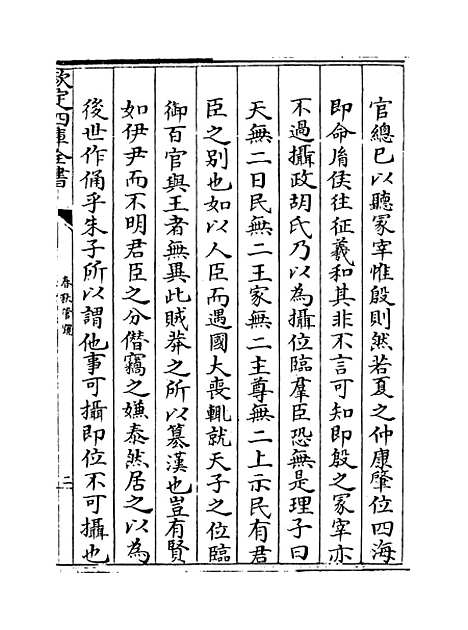 官總已以聽冢宰惟殷則然若夏之仲康肇位四海
即命胤侯往征羲和其非不言可知即殷之冢宰亦
不過攝政胡氏乃以為攝位臨羣臣恐無是理子曰
天無二日民無二王家無二主尊無二上示民有君
臣之别也如以人臣而遇國大喪輒就天子之位臨
御百官與王者無異此賊莽之所以簒漢也豈有賢
如伊尹而不明君臣之分僭竊之嫌泰然居之以為
後世作俑乎朱子所以謂他事可攝即位不可攝也
欽定四庫全書
春秋管窺
二